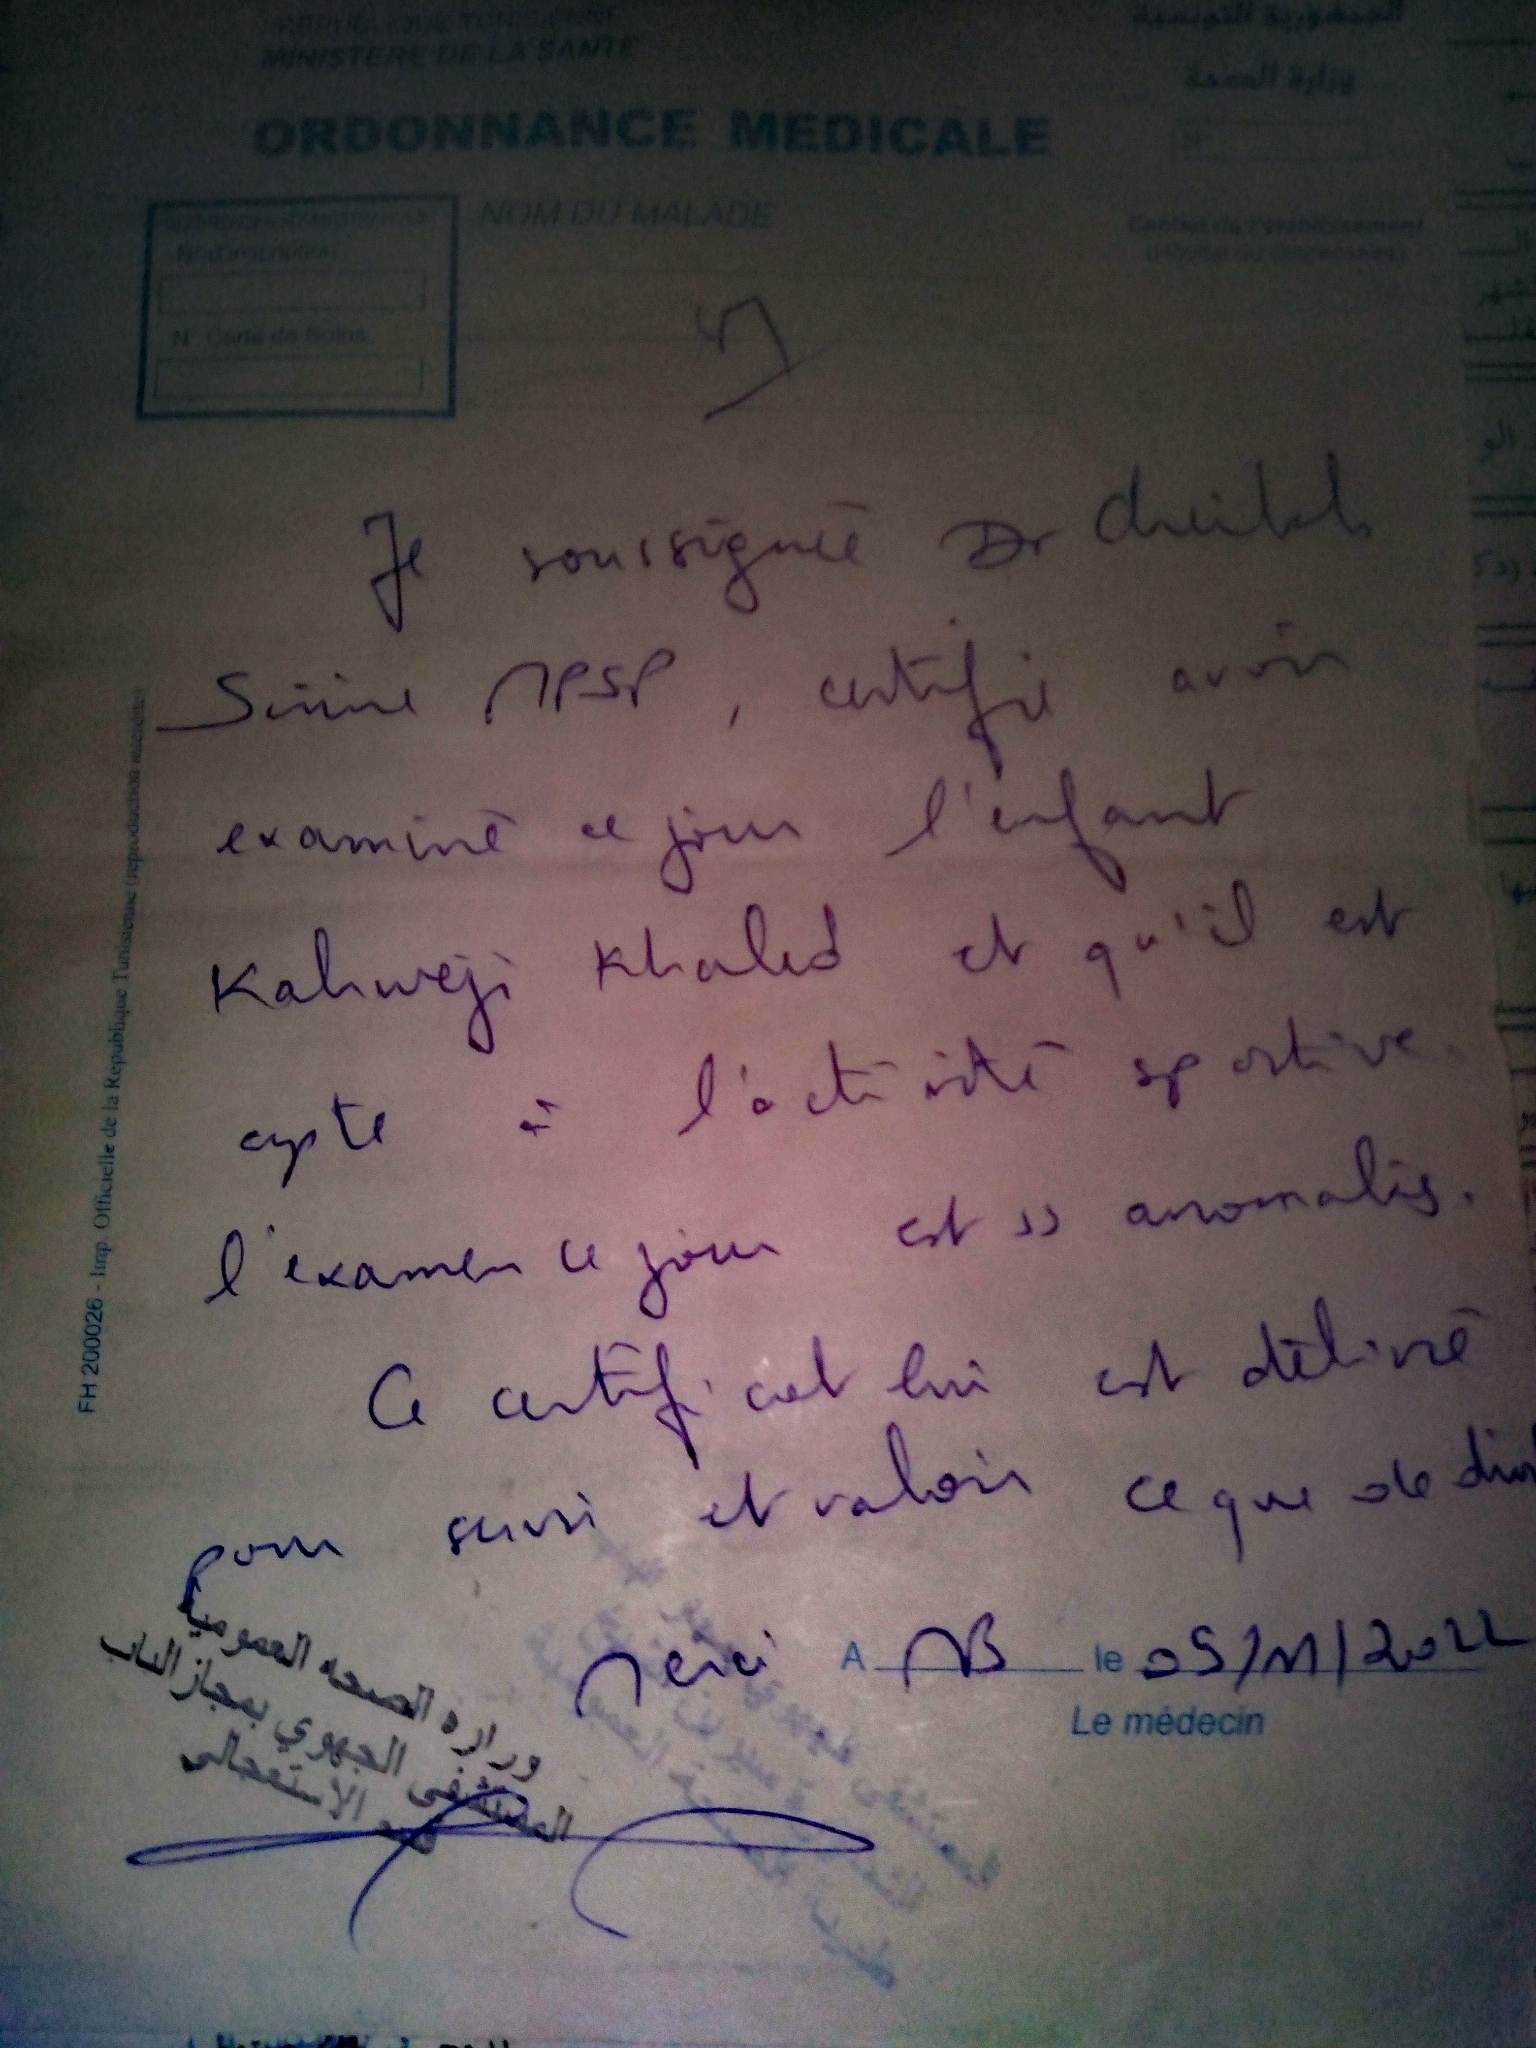 REPUBLIQUE TUNISIENNE
MINISTERE DE LA SANTE
الجمهورية التونسية
وزارة الصحة
ORDONNANCE MEDICALE
N°
NOM DU MALADE
N° d'inscription
N° Carte de Soins
Cachet de l'établissement
Je soussignée Dr
Sirine MPSP, certifie avoir
examiné ce jour l'enfant
Kahweji Khaled et qu'il est
apte à l'activité sportive.
l'examen ce jour est ss anomalies.
Ce certificat lui est délivré
pour servir et valoir ce que de droit
Merci A MB le 05/11/2022
Le médecin
وزارة الصحة العمومية
المستشفى الجهوي بمجاز الباب
قسم الاستعجالي
FH 200026 - Imp. Officielle de la République Tunisienne (reproduction interdite)